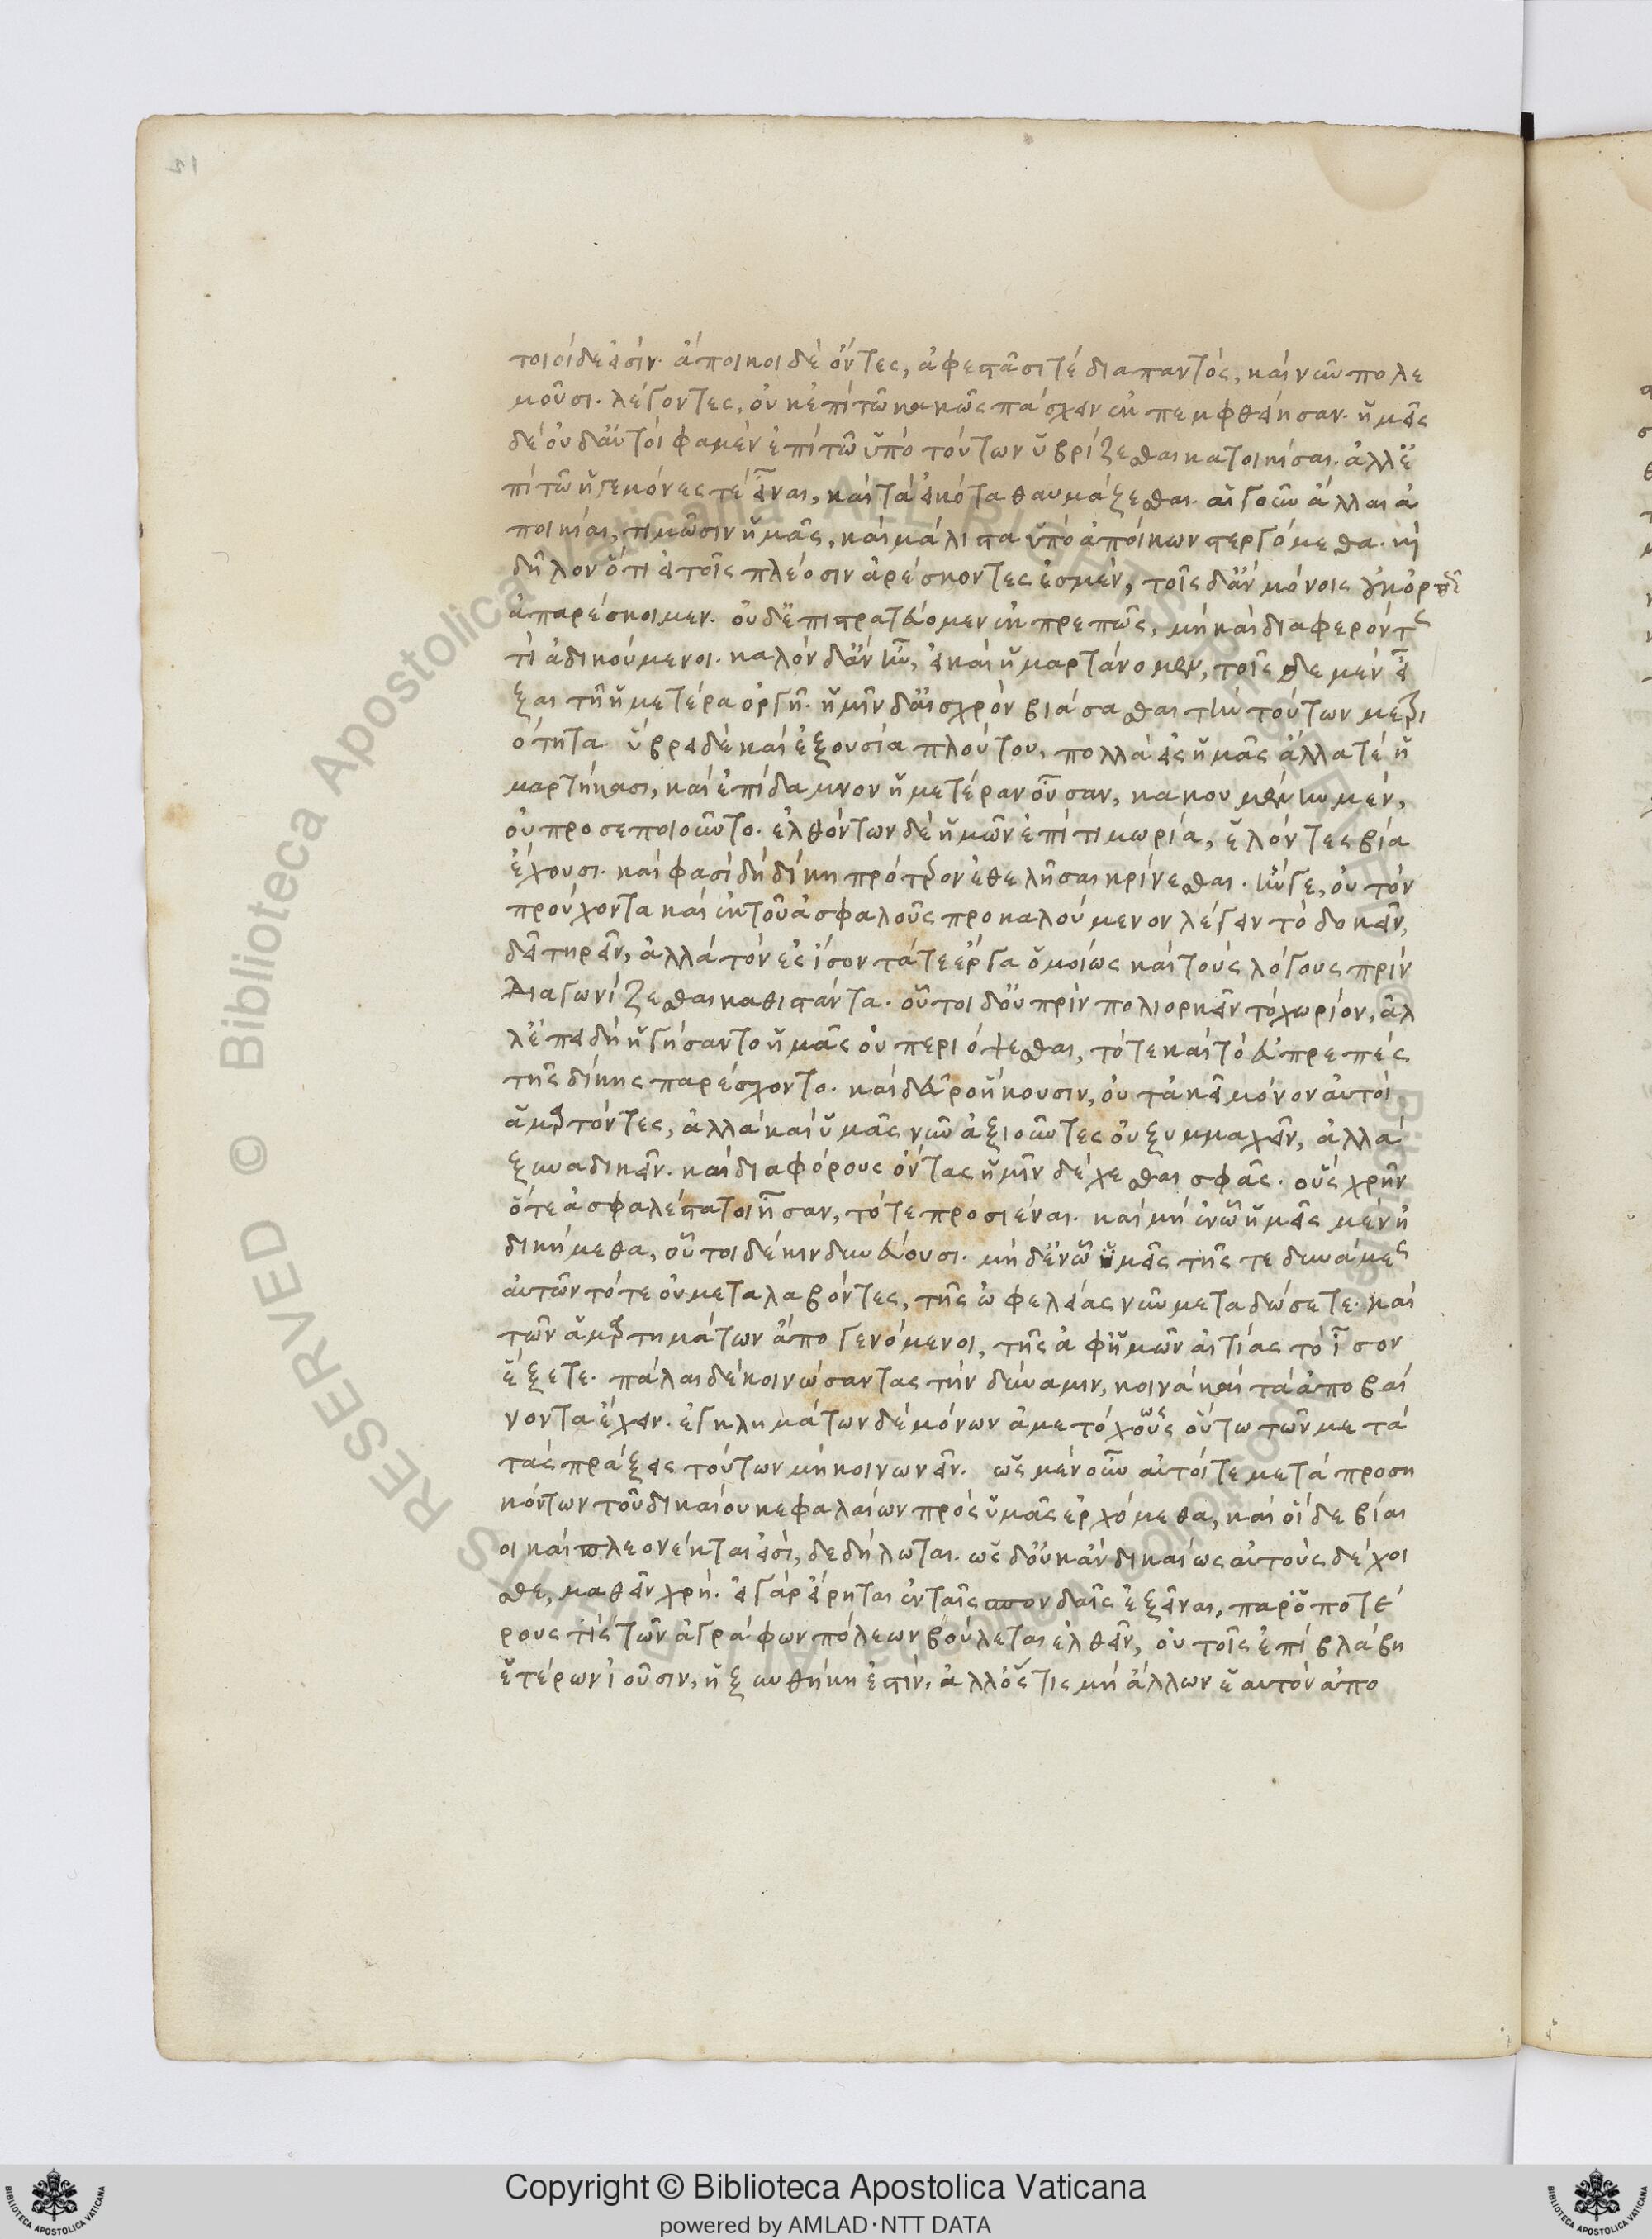 τοι οἵδε εἰσίν. ἄποικοι δὲ ὄντες, ἀφεστᾶσί τε διαπαντὸς, καὶ νῦν πολε
μοῦσι. λέγοντες, οὐκ ἐπὶ τῶ κακῶς πάσχειν ἐκπεμφθείησαν. ἡμεῖς
δὲ οὐδ' αὐτοί φαμεν ἐπὶ τῶ ὑπὸ τούτων ὑβρίζεσθαι κατοικίσαι. ἀλλ' ἐ
πὶ τῶ ἡγεμόνες τὲ εἶναι, καὶ τὰ εἰκότα θαυμάζεσθαι. αἱ γοῦν ἄλλαι ἀ
ποικίαι, τιμῶσιν ἡμᾶς, καὶ μάλιστα ὑπὸ ἀποίκων στεργόμεθα. καὶ
δῆλον ὅτι εἰ τοῖς πλέοσιν ἀρέσκοντες ἐσμὲν, τοῖσδ' ἂν μόνοις οὐκ ὀρθῶς
ἀπαρέσκοιμεν. οὐδ' ἐπιστρατεύομεν ἐκπρεπῶς, μὴ καὶ διαφερόντως
τὶ ἀδικούμενοι. καλὸν δ' ἂν ἦν, εἰ καὶ ἡμαρτάνομεν, τοῖσδε μὲν εἶ
ξαι τῆ ἡμετέρα ὀργῆ. ἡμῖν δ' αἰσχρὸν βιάσασθαι τὴν τούτων μετρι
ότητα. ὕβρει δὲ καὶ ἐξουσία πλούτου, πολλὰ ἐς ἡμᾶς ἄλλα τὲ ἡ
μαρτήκασι, καὶ ἐπίδαμνον ἡμετέραν οὖσαν, κακουμένην μὲν,
οὐ προσεποιοῦντο. ἐλθόντων δὲ ἡμῶν ἐπὶ τιμωρία, ἑλόντες βία
ἔχουσι. καὶ φασὶ δὴ δίκη πρότερον ἐθελῆσαι κρίνεσθαι. ἥν γε, οὐ τὸν
προύχοντα καὶ ἐκ τοῦ ἀσφαλοῦς προκαλούμενον λέγειν τὸ δοκεῖν,
δεῖ τηρεῖν, ἀλλὰ τὸν ἐς ἴσον τά τε ἔργα ὁμοίως καὶ τοὺς λόγους πρὶν
διαγωνίζεσθαι καθιστάντα. οὗτοι δ' οὐ πρὶν πολιορκεῖν τὸ χωρίον, ἀλ
λ' ἐπειδὴ ἡγήσαντο ἡμᾶς οὐ περιόψεσθαι, τότε καὶ τὸ εὐπρεπὲς
τῆς δίκης παρέσχοντο. καὶ δεῦρο ἥκουσιν, οὐ τἀκεῖ μόνον αὐτοὶ
ἁμαρτόντες, ἀλλὰ καὶ ὑμᾶς νῦν ἀξιοῦντες οὐ ξυμμαχεῖν, ἀλλὰ
ξυναδικεῖν. καὶ διαφόρους ὄντας ἡμῖν δέχεσθαι σφᾶς. οὓς χρῆν
ὅτε ἀσφαλέστατοι ἦσαν, τότε προσιέναι. καὶ μὴ ἐν ὧ ἡμεῖς μὲν ἠ
δικήμεθα, οὗτοι δὲ κινδυνεύουσι. μὴ δ' ἐν ὧ ὑμεῖς τῆς τε δυνάμεως
αὐτῶν τότε οὐ μεταλαβόντες, τῆς ὠφελείας νῦν μεταδώσετε. καὶ
τῶν ἁμαρτημάτων ἀπογενόμενοι, τῆς ἀφ' ἡμῶν αἰτίας τὸ ἶσον
ἕξετε. πάλαι δὲ κοινώσαντας τὴν δύναμιν, κοινὰ καὶ τὰ ἀποβαί
νοντα ἔχειν. ἐγκλημάτων δὲ μόνων ἀμετόχους οὕτω τῶν μετὰ
τὰς πράξεις τούτων μὴ κοινωνεῖν. ὡς μὲν οὖν αὐτοί τε μετὰ προση
κόντων τοῦ δικαίου κεφαλαίων πρὸς ὑμᾶς ἐρχόμεθα, καὶ οἵδε βίαι
οι καὶ πλεονέκται εἰσὶ, δεδήλωται. ὡς δ' οὐκ ἂν δικαίως αὐτοὺς δέχοι
σθε, μαθεῖν χρή. εἰ γὰρ εἴρηται ἐν ταῖς σπονδαῖς ἐξεῖναι, παρ' ὁποτέ
ρους τὶς τῶν ἀγράφων πόλεων βούλεται ἐλθεῖν, οὐ τοῖς ἐπὶ βλάβη
ἑτέρων ἰοῦσιν, ἡ ξυνθήκη ἐστίν. ἀλλ' ὅστις μὴ ἄλλων ἑαυτὸν ἀπο
Copyright © Biblioteca Apostolica Vaticana
powered by AMLAD·NTT DATA